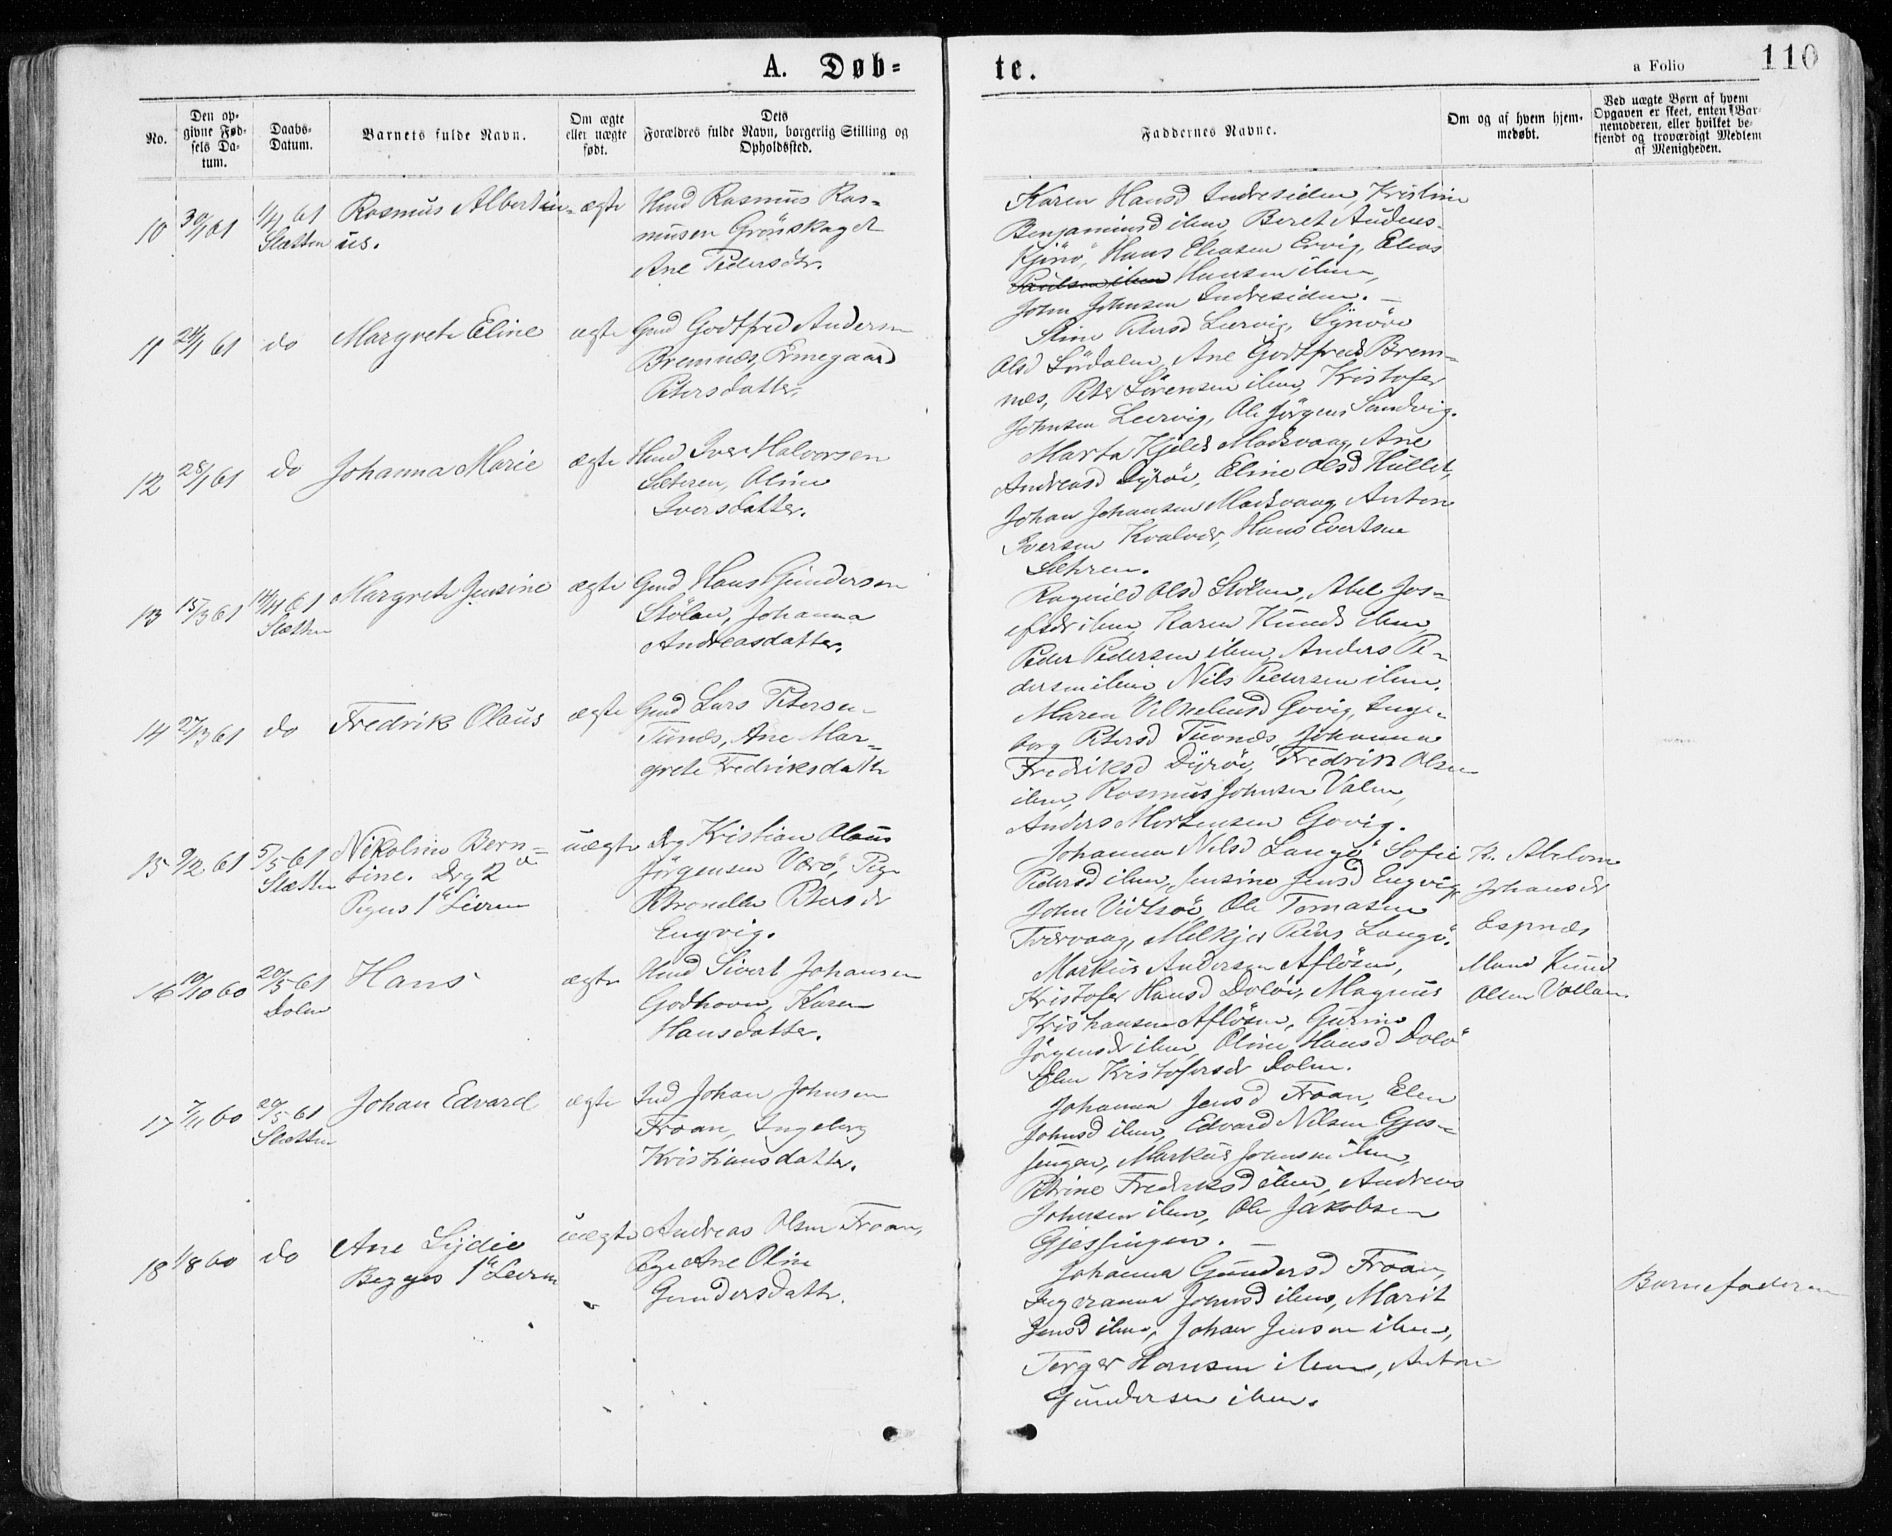 A. Døb-
te.
a Folio
110
No.
Den op-
givne Fød-
sels Da-
tum.
Daabs-
Datum.
Barnets fulde Navn.
Om ægte
eller uægte
født.
Dets
Forældres fulde Navn, borgerlig Stilling og
Opholdssted.
Faddernes Navne.
Om og af hvem hjem-
medøbt.
Ved uægte Børn af hvem
Opgaven er skeet, enten Bar-
nemoderen, eller hvilket be-
kjendt og troværdigt Medlem
af Menigheden.
10 30/1 61 1/4 61 Rasmus Albertin- ægte Huusmd Rasmus Ras-
Sletten us. musen Grönskaget
Ane Pedersdtr.
Karen Hansd Indresiden, Kristine
Benjaminsd ibm, Beret Anders-
Kjönö, Hans Eliasen Ervig, Elias
Hansen ibm,
John Johnsen Indresiden. —
11 24/1 61 do Margrete Eline ægte Gmd Godtfred Andersen
Bremnes, Ermegaard
Petersdatter.
Stine Petersd Leervig, Synöve
Olsd Sördalen, Ane Godtfreds Brem-
nes, Peter Sörensen ibm, Kristofer
Johnsen Leervig, Ole Jörgens Sandvig.
12 28/1 61 do Johanna Marie ægte Hmd Iver Halvorsen
Sæteren, Oline
Iversdatter.
Marta Kjelds Madsvaag, Ane
Andreasd Dyröi, Eline Olsd Hullet,
Johan Johansen Madsvaag, Anton
Iversen Kvalvær, Hans Evertsen
Sæteren.
13 15/3 61 14/4 61 Margrete Jensine ægte Gmd Hans Gundersen
Sletten Stölan, Johanna
Andreasdatter.
Ragnild Olsd Stölan, Abel Jos-
efsdr ibm, Karen Knuds ibm,
Peder Pedersen ibm, Anders Pe-
dersen ibm, Nils Pedersen ibm.
14 27/3 61 do Fredrik Olaus ægte Gmd Lars Petersen
Tunæs, Ane Mar-
grete Fredriksdatter
Maren Vilhelmsd Govig, Inge-
borg Petersd Tuvnæs, Johanna
Fredriksd Dyröi, Fredrik Olsen
ibm, Rasmus Johnsen Valen,
Anders Mortensen Govig.
15 9/2 61 5/5 61 Nikoline Bern- uægte Drg Kristian Olaus
Sletten tine. Drg 2d Jörgensen Værö, Pige
Piges 1st Leierm Petronelle Petersdr
Engvig.
Johanna Nilsd Langö, Sofie
Pedersd ibm, Jensine Jensd Engvig,
John Vidtsöe, Ole Tomasen
Tvervaag, Melkjer Peters Langö.
K. Abelone
Johansdr
Espnæs
16 19/10 60 20/5 61 Hans ægte Hmd Sivert Johansen
Dolm Godhavn, Karen
Hansdatter.
Markus Andersen Aflösen,
Kristofer Hansd Dolöi, Magnus
Kristiansen Aflösen, Gurine
Jörgensdr ibm, Oline Hansd Dolö
Elen Kristofersdr Dolm.
Mand Knud
Olsen Vollan
17 7/11 60 20/5 61 Johan Edvard ægte Ind Johan Johnsen
Sletten Froan, Ingeborg
Kristiansdatter.
Johanna Jensd Froan, Elen
Johnsd ibm, Edvard Nilsen Gjes-
singen, Markus Johnsen ibm,
Petrine Fredriksd ibm, Andreas
Johnsen ibm, Ole Jakobsen
Gjessingen. —
18 1/8 60 do Ane Lydie uægte Andreas Olsen Froan,
Begges 1st Leierm Pige Ane Oline
Gundersdatter.
Johanna Gundersd Froan,
Ingeranna Johnsd ibm, Marit
Jensd ibm, Johan Jensen ibm,
Torger Hansen ibm, Anton
Gundersen ibm.
Barnefaderen